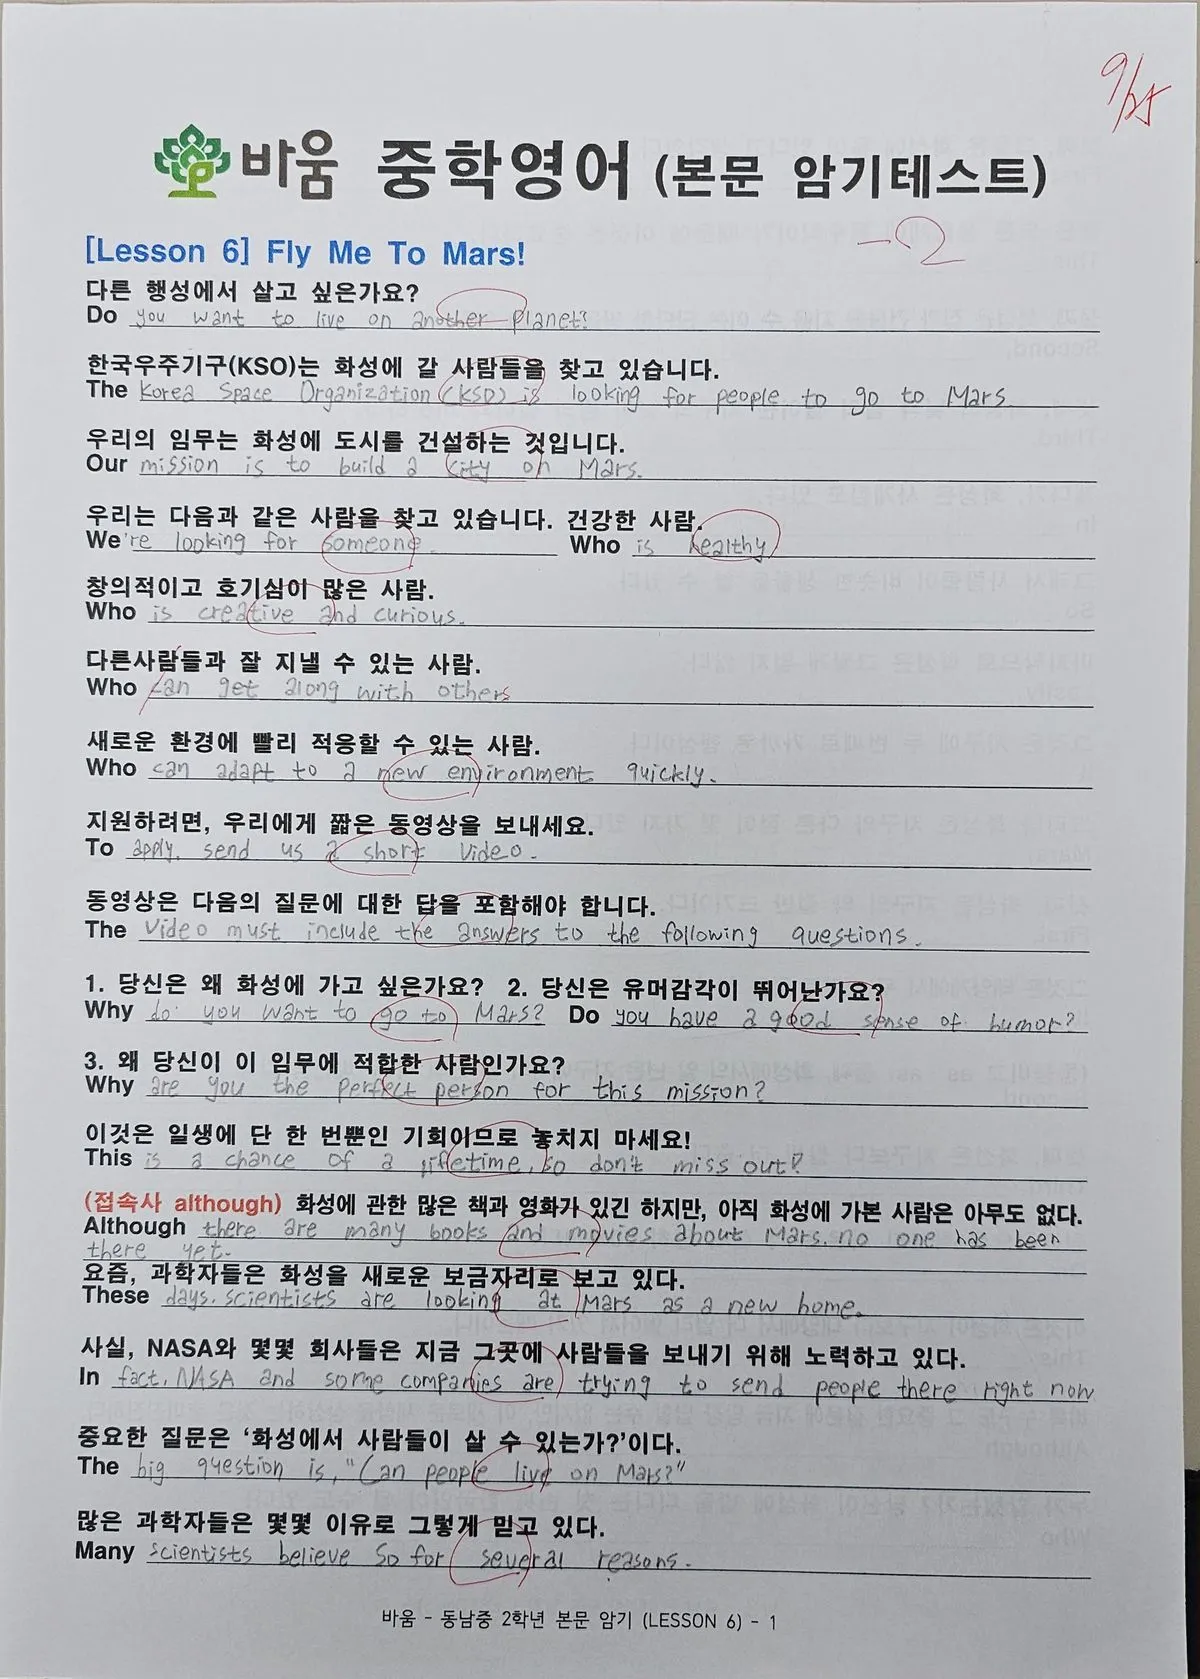 9/25
바움 중학영어 (본문 암기테스트)
-2
[Lesson 6] Fly Me To Mars!
다른 행성에서 살고 싶은가요?
Do you want to live on another planet?
한국우주기구(KSO)는 화성에 갈 사람들을 찾고 있습니다.
The Korea Space Organization (KSO) is looking for people to go to Mars
우리의 임무는 화성에 도시를 건설하는 것입니다.
Our mission is to build a city on Mars.
우리는 다음과 같은 사람을 찾고 있습니다. 건강한 사람.
We're looking for someone. Who is healthy
창의적이고 호기심이 많은 사람.
Who is creative and curious.
다른사람들과 잘 지낼 수 있는 사람.
Who can get along with others
새로운 환경에 빨리 적응할 수 있는 사람.
Who can adapt to a new environment quickly.
지원하려면, 우리에게 짧은 동영상을 보내세요.
To apply, send us a short video.
동영상은 다음의 질문에 대한 답을 포함해야 합니다.
The video must include the answers to the following questions.
1. 당신은 왜 화성에 가고 싶은가요? 2. 당신은 유머감각이 뛰어난가요?
Why do you want to go to Mars? Do you have a good sense of humor?
3. 왜 당신이 이 임무에 적합한 사람인가요?
Why are you the perfect person for this mission?
이것은 일생에 단 한 번뿐인 기회이므로 놓치지 마세요!
This is a chance of a lifetime, so don't miss out!
(접속사 although) 화성에 관한 많은 책과 영화가 있긴 하지만, 아직 화성에 가본 사람은 아무도 없다.
Although there are many books and movies about Mars, no one has been
there yet.
요즘, 과학자들은 화성을 새로운 보금자리로 보고 있다.
These days, scientists are looking at Mars as a new home.
사실, NASA와 몇몇 회사들은 지금 그곳에 사람들을 보내기 위해 노력하고 있다.
In fact, NASA and some companies are trying to send people there right now
중요한 질문은 '화성에서 사람들이 살 수 있는가?'이다.
The big question is, "Can people live on Mars?"
많은 과학자들은 몇몇 이유로 그렇게 믿고 있다.
Many scientists believe so for several reasons.
바움 - 동남중 2학년 본문 암기 (LESSON 6) - 1